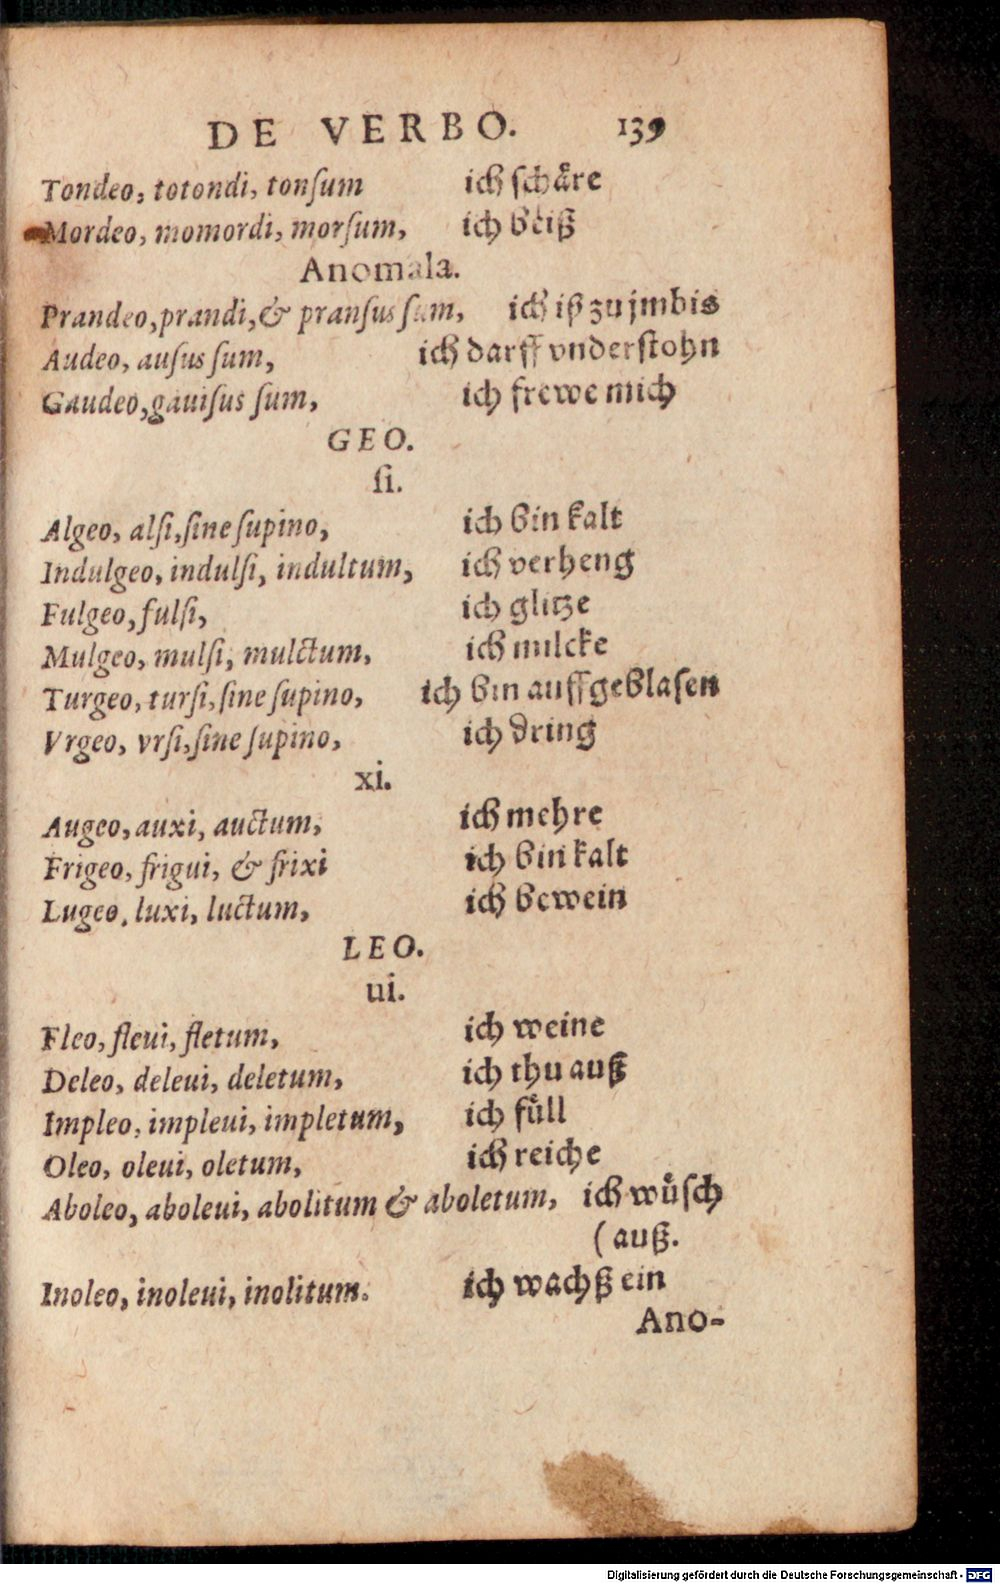 DE VERBO. 139
Tondeo, totondi, tonſum ich ſchaͤre
Mordeo, momordi, morſum, ich beiß
Anomala.
Prandeo, prandi, & pranſus ſum, ich iß zu jmbis
Audeo, auſus ſum, ich darff vnderſtohn
Gaudeo, gauiſus ſum, ich frewe mich
GEO.
ſi.
Algeo, alſi, ſine ſupino, ich bin kalt
Indulgeo, indulſi, indultum, ich verheng
Fulgeo, fulſi, ich glitze
Mulgeo, mulſi, mulctum, ich milcke
Turgeo, turſi, ſine ſupino, ich bin auffgeblaſen
Vrgeo, vrſi, ſine ſupino, ich dring
xi.
Augeo, auxi, auctum, ich mehre
Frigeo, frigui, & frixi ich bin kalt
Lugeo, luxi, luctum, ich bewein
LEO.
ui.
Fleo, fleui, fletum, ich weine
Deleo, deleui, deletum, ich thu auß
Impleo, impleui, impletum, ich fuͤll
Oleo, oleui, oletum, ich reiche
Aboleo, aboleui, abolitum & aboletum, ich wuͤſch
(auß.
Inoleo, inoleui, inolitum. ich wachß ein
Ano-
Digitalisierung gefördert durch die Deutsche Forschungsgemeinschaft - DFG